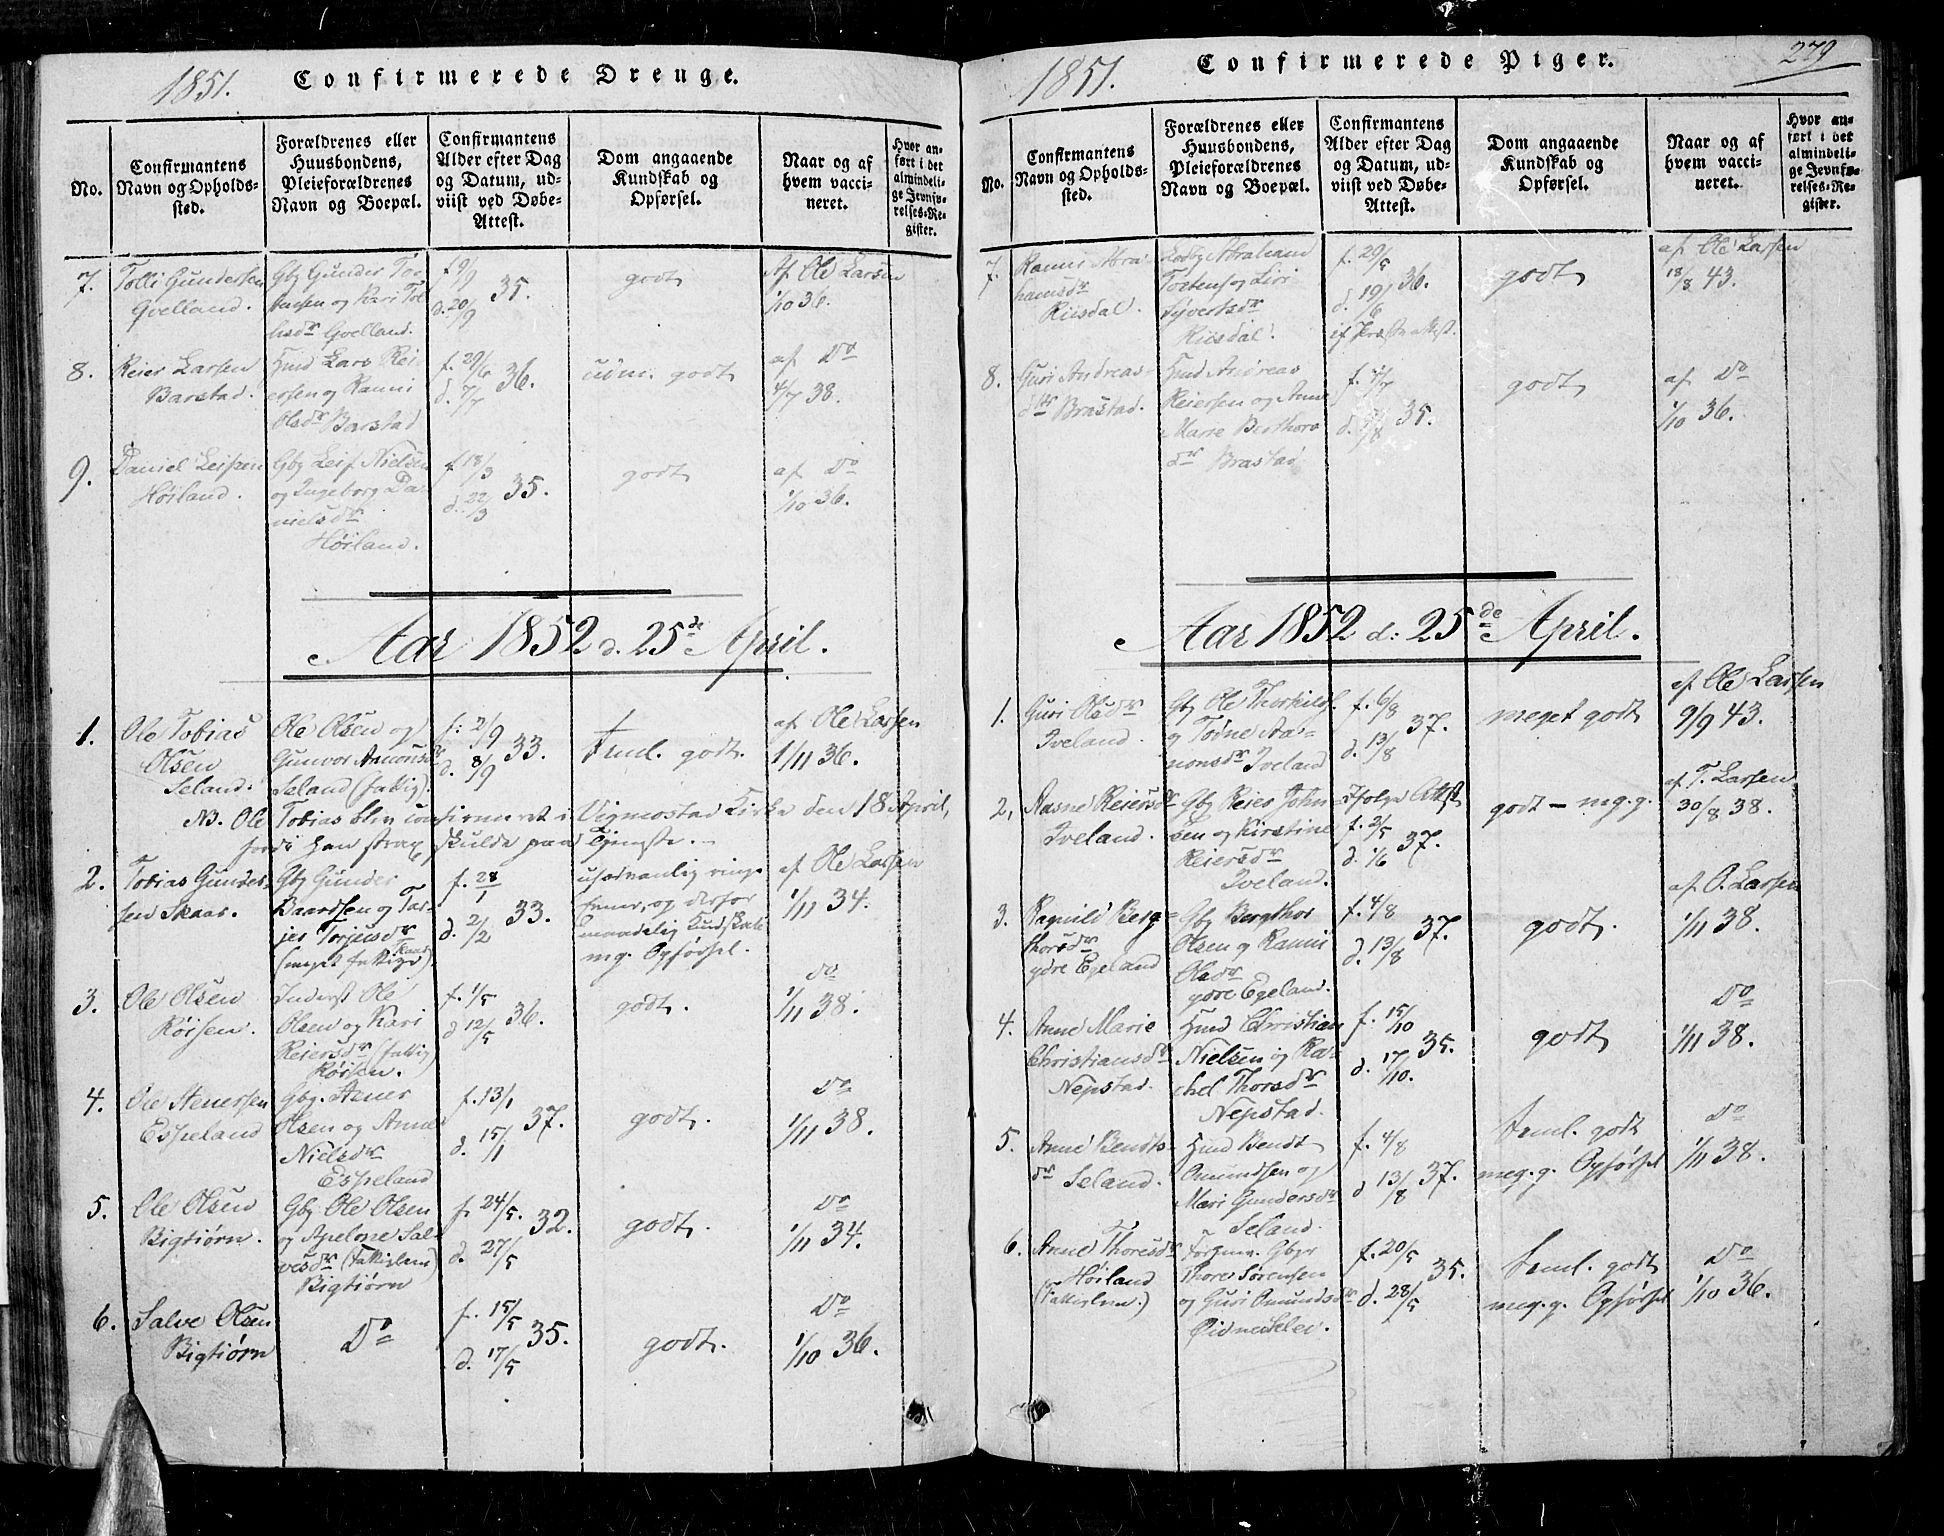 1851. Confirmerede Drenge.
No.
Confirmantens
Navn og Opholds-
sted.
Forældrenes eller
Huusbondens,
Pleieforældrenes
Navn og Boepæl.
Confirmantens
Alder efter Dag
og Datum, ud-
viist ved Døbe-
Attest.
Dom angaaende
Kundskab og
Opførsel.
Naar og af
hvem vacci-
neret.
Hvor an-
ført i det
almindeli-
ge Jevnfø-
relses-Re-
gister.
7. Tolli Gundersen
Gvelland.
Gbg Gunder Tor-
kensen og Kari Tol-
lisdr Gvelland.
f. 9/9
d. 20/9 35.
godt
Af Ole Larsen
1/10 36.
8. Reier Larsen
Barstad.
Hmd Lars Rei-
ersen og Ranni
Olsdr Barstad
f. 29/6
d. 7/7 36.
udm. godt
af Do
4/7 38.
9. Daniel Leifsen
Høiland.
Gbg Leif Nielsen
og Ingeborg Da-
nielsdr
Høiland.
f. 18/3
d. 22/3 35.
godt
af Do
1/10 36.
Aar 1852 d. 25de April.
1. Ole Tobias
Olsen
Seland.
Ole Olsen og
Gunvor Amonsdr
Seland (fattig).
f: 2/9
d. 8/9 33.
Teml. godt.
af Ole Larsen
1/11 36.
NB. Ole Tobias blev confirmeret i Vigmostad Kirke den 18 April,
fordi han strax skulde paa Tjeneste.
2. Tobias Gunder-
sen Skaar.
Gbg Gunder
Baardsen og Tar-
jer Torjeusdr
(meget fattige) Skaar
f. 28/1
d. 2/2 33.
usædvanlig ringe
Evner, og derfor
maadelig Kundskab
mg. Opførsel.
af Ole Larsen
1/11 34.
3. Ole Olsen
Røisen.
Inderst Ole
Olsen og Kari
Reiersdr (fattig)
Røisen.
f. 1/5
d 12/5 36.
godt.
Do
1/11 38.
4. Ole Stenersen
Espeland
Gbg. Stener
Olsen og Anne
Nielsdr
Espeland
f. 13/1
d. 15/1 37.
godt.
Do
1/11 38.
5. Ole Olsen
Bigtiørn.
Gbg Ole Olsen
og Apelone Sal-
vesdr (Fattiglem)
Bigtiørn
f. 24/5.
d. 27/5 32.
godt.
Do
1/11 34.
6. Salve Olsen
Bigtiørn
Do
f. 15/5
d. 17/5 35.
godt.
Do
1/10 36.
1851. Confirmerede Piger. 279
No.
Confirmantens
Navn og Opholds-
sted.
Forældrenes eller
Huusbondens,
Pleieforældrenes
Navn og Boepæl.
Confirmantens
Alder efter Dag
og Datum, ud-
viist ved Døbe-
Attest.
Dom angaaende
Kundskab og
Opførsel.
Naar og af
hvem vacci-
neret.
Hvor an-
ført i det
almindeli-
ge Jevnfø-
relses-Re-
gister.
7. Ranni Abra-
hamsdr
Riisdal.
Abraham
Tostens og Siri
Syvertsdr
Riisdal.
f. 29/5
d. 19/6 36.
if Præste attest.
godt
af Ole Larsen
18/8 43.
8. Guri Andreas-
dtr Brastad.
Hmd Andreas
Reiersen og Anne
Marie Berthors
dr Brastad
35.
godt
af Do
1/10 36.
Aar 1852 d: 25de April.
1. Guri Olsdr
Iveland.
Gbg Ole Thorkilds.
og Tødne Aa-
nonsdr Iveland
f. 6/8
d. 13/8 37.
meget godt
af Ole Larsen
9/9 43.
2, Aasne Reiersdr
Iveland.
Gbg Reier John-
sen og Kirstine
Reiersdr
Iveland.
ifølge Attest
f. 2/5
d. 1/6 37.
godt – mg.g.
af T. Larsen
30/8 38.
3. Ragnild Berg-
thorsdr
ydre Egeland
Gbg Bergthor
Olsen og Ranni
Olsdr
ydre Egeland.
f. 4/8
d. 13/8 37.
godt.
af O. Larsen
1/11 38.
4. Anne Marie
Christiansdr
Nepstad.
Hmd Christian
Nielsen og Ra-
chel Thorsdr
Nepstad.
f. 15/10
d. 17/10. 35.
godt
Do
1/11 38.
5. Anne Bendts-
dr Seland.
Hmd Bendt
Omundsen og
Mari Gundersdr
Seland.
f. 4/8
d 13/8 37.
Teml. godt
meg.g. Opførsel
Do
1/11 38.
6. Anne Thoresdr
Høiland
(Fattiglem.)
Gbgr
Thore Sørensen
og Guri Omundsdr
Øidneskler.
f. 20/5
d. 28/5 35.
Teml. godt
meg.g. Opførsel
Do
1/10 36.